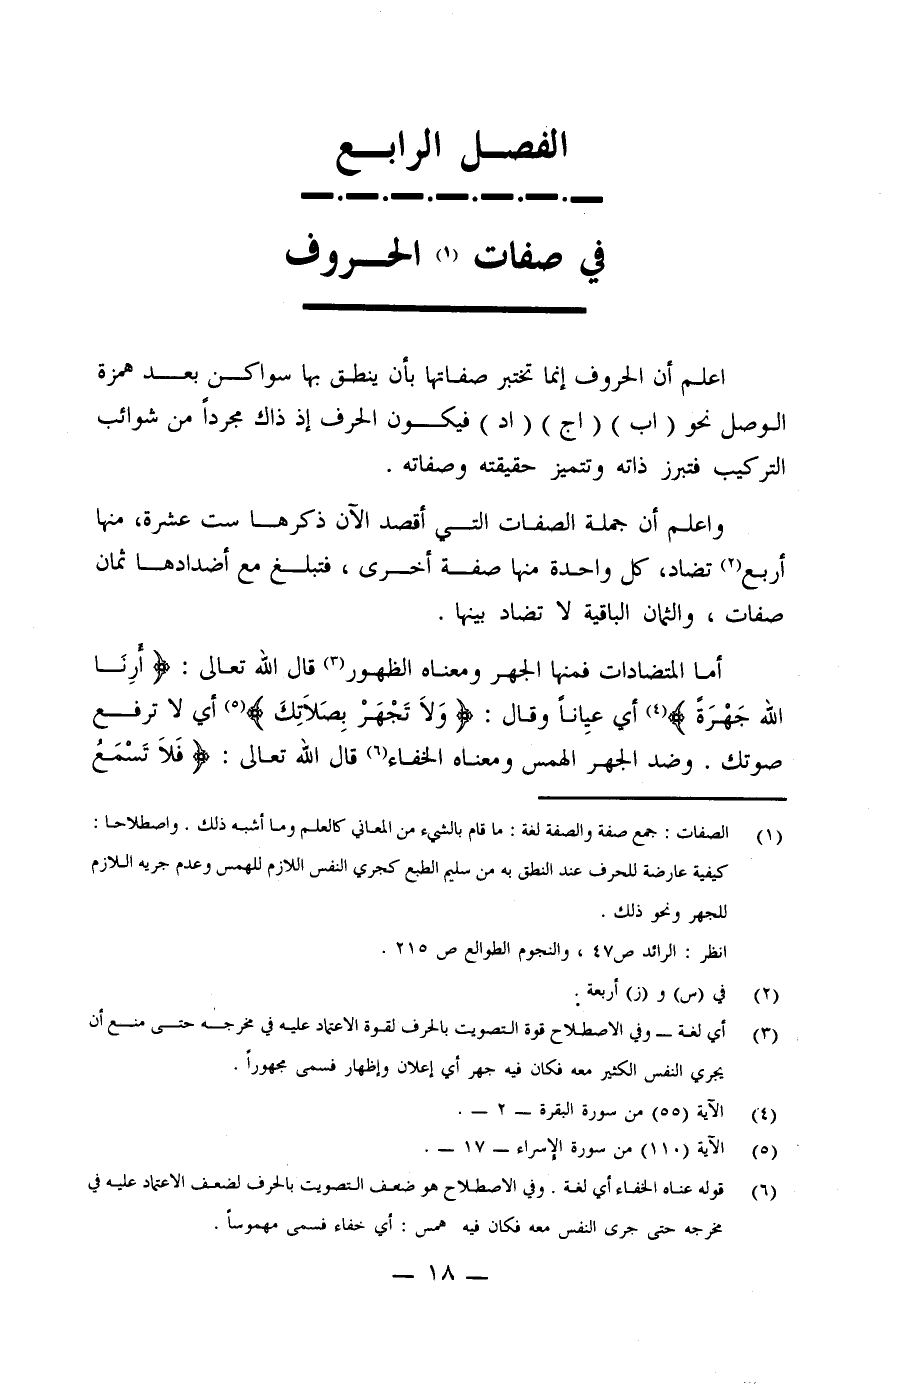 الفصل الرابع
في صفات (١) الحروف
اعلم أن الحروف إنما تختبر صفاتها بأن ينطق بها سواكن بعد همزة
الوصل نحو ( اب ) ( اج ) ( اد ) فيكون الحرف إذ ذاك مجرداً من شوائب
التركيب فتبرز ذاته وتتميز حقيقته وصفاته .
واعلم أن جملة الصفات التي أقصد الآن ذكرها ست عشرة، منها
أربع(٢) تضاد، كل واحدة منها صفة أخرى ، فتبلغ مع أضدادها ثمان
صفات ، والثمان الباقية لا تضاد بينها .
أما المتضادات فمنها الجهر ومعناه الظهور(٣) قال الله تعالى : ﴿ أَرِنَا
الله جَهْرَةً ﴾(٤) أي عياناً وقال : ﴿ وَلاَ تَجْهَرْ بِصَلاَتِكَ ﴾(٥) أي لا ترفع
صوتك . وضد الجهر الهمس ومعناه الخفاء(٦) قال الله تعالى : ﴿ فَلاَ تَسْمَعُ
(١) الصفات : جمع صفة والصفة لغة : ما قام بالشيء من المعاني كالعلم وما أشبه ذلك . واصطلاحا :
كيفية عارضة للحرف عند النطق به من سليم الطبع كجري النفس اللازم للهمس وعدم جريه اللازم
للجهر ونحو ذلك .
انظر : الرائد ص٤٧ ، والنجوم الطوالع ص ٢١٥ .
(٢) في (س) و (ز) أربعة .
(٣) أي لغة ــ وفي الاصطلاح قوة التصويت بالحرف لقوة الاعتماد عليه في مخرجه حتى منع أن
يجري النفس الكثير معه فكان فيه جهر أي إعلان وإظهار فسمى مجهوراً .
(٤) الآية (٥٥) من سورة البقرة ــ ٢ ــ .
(٥) الآية (١١٠) من سورة الإسراء ــ ١٧ ــ .
(٦) قوله عناه الخفاء أي لغة . وفي الاصطلاح هو ضعف التصويت بالحرف لضعف الاعتماد عليه في
مخرجه حتى جرى النفس معه فكان فيه همس : أي خفاء فسمى مهموساً .
ــ ١٨ ــ